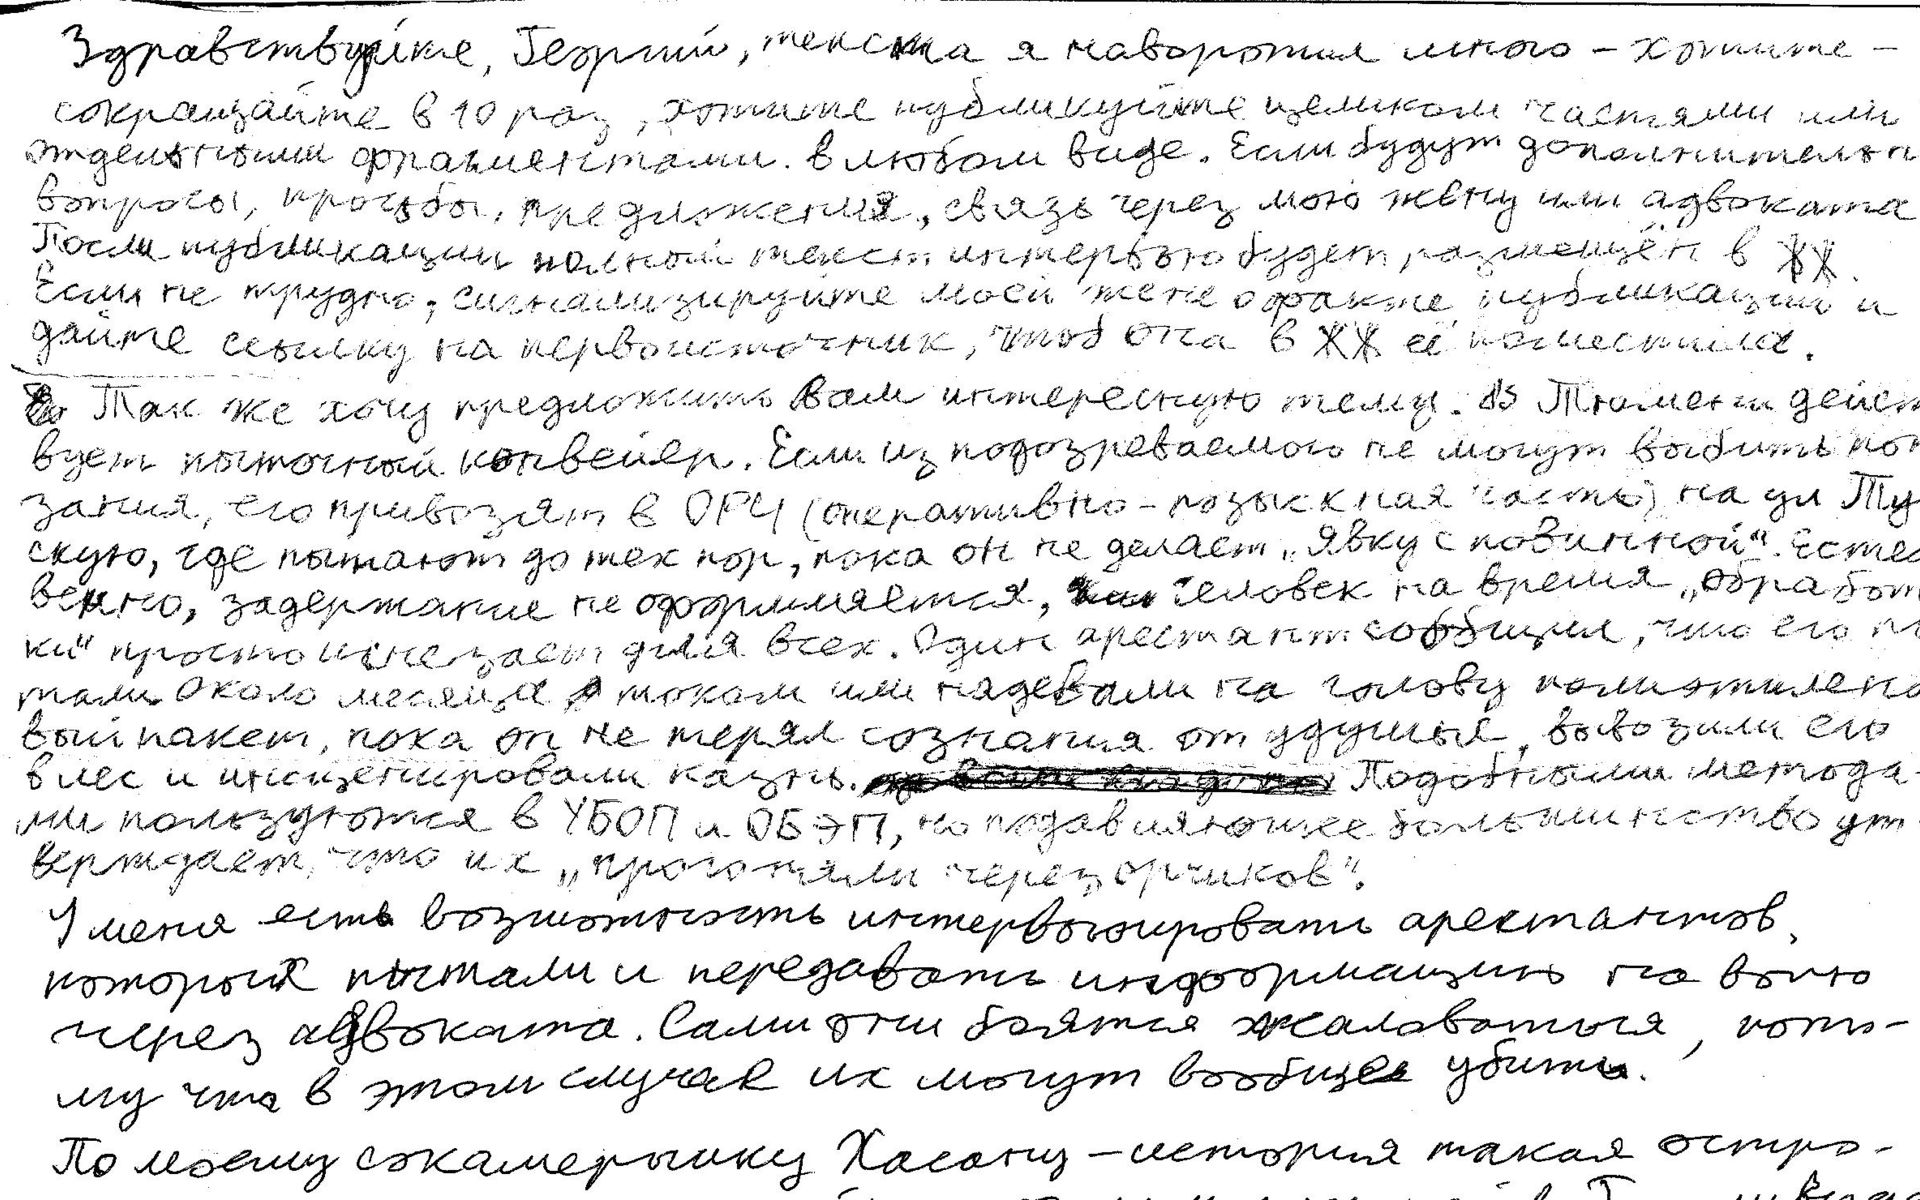 Здравствуйте, Георгий, текста я наворотил много – хотите –
сокращайте в 10 раз, хотите публикуйте целиком частями или
отдельными фрагментами. в любом виде. Если будут дополнительн
вопросы, просьбы, предложения, связь через мою жену или адвоката
После публикации полный текст интервью будет размещён в ЖЖ.
Если не трудно, сигнализируйте моей жене о факте публикации и
дайте ссылку на первоисточник, чтоб она в ЖЖ её поместила.
Так же хочу предложить Вам интересную тему. В Тюмени дейст
вует пыточный конвейер. Если из подозреваемого не могут выбить пок
зания, его привозят в ОРЧ (оперативно-розыскная часть) на ул Ту
скую, где пытают до тех пор, пока он не делает „явку с повинной“. Естес
венно, задержание не оформляется, человек на время „обработ
ки“ просто исчезает для всех. Один арестант сообщил, что его пы
тали около месяца током или надевали на голову полиэтилено
вый пакет, пока он не терял сознания от удушья, вывозили его
в лес и инсценировали казнь. Подобными метода-
ми пользуются в УБОП и ОБЭП, но подавляющее большинство ут-
верждает, что их „прогоняли через орчиков“.
У меня есть возможность интервьюировать арестантов,
которых пытали и передавать информацию на волю
через адвоката. Сами они боятся жаловаться, пото-
му что в этом случае их могут вообще убить.
По моему сокамернику Хасану – история такая остро-